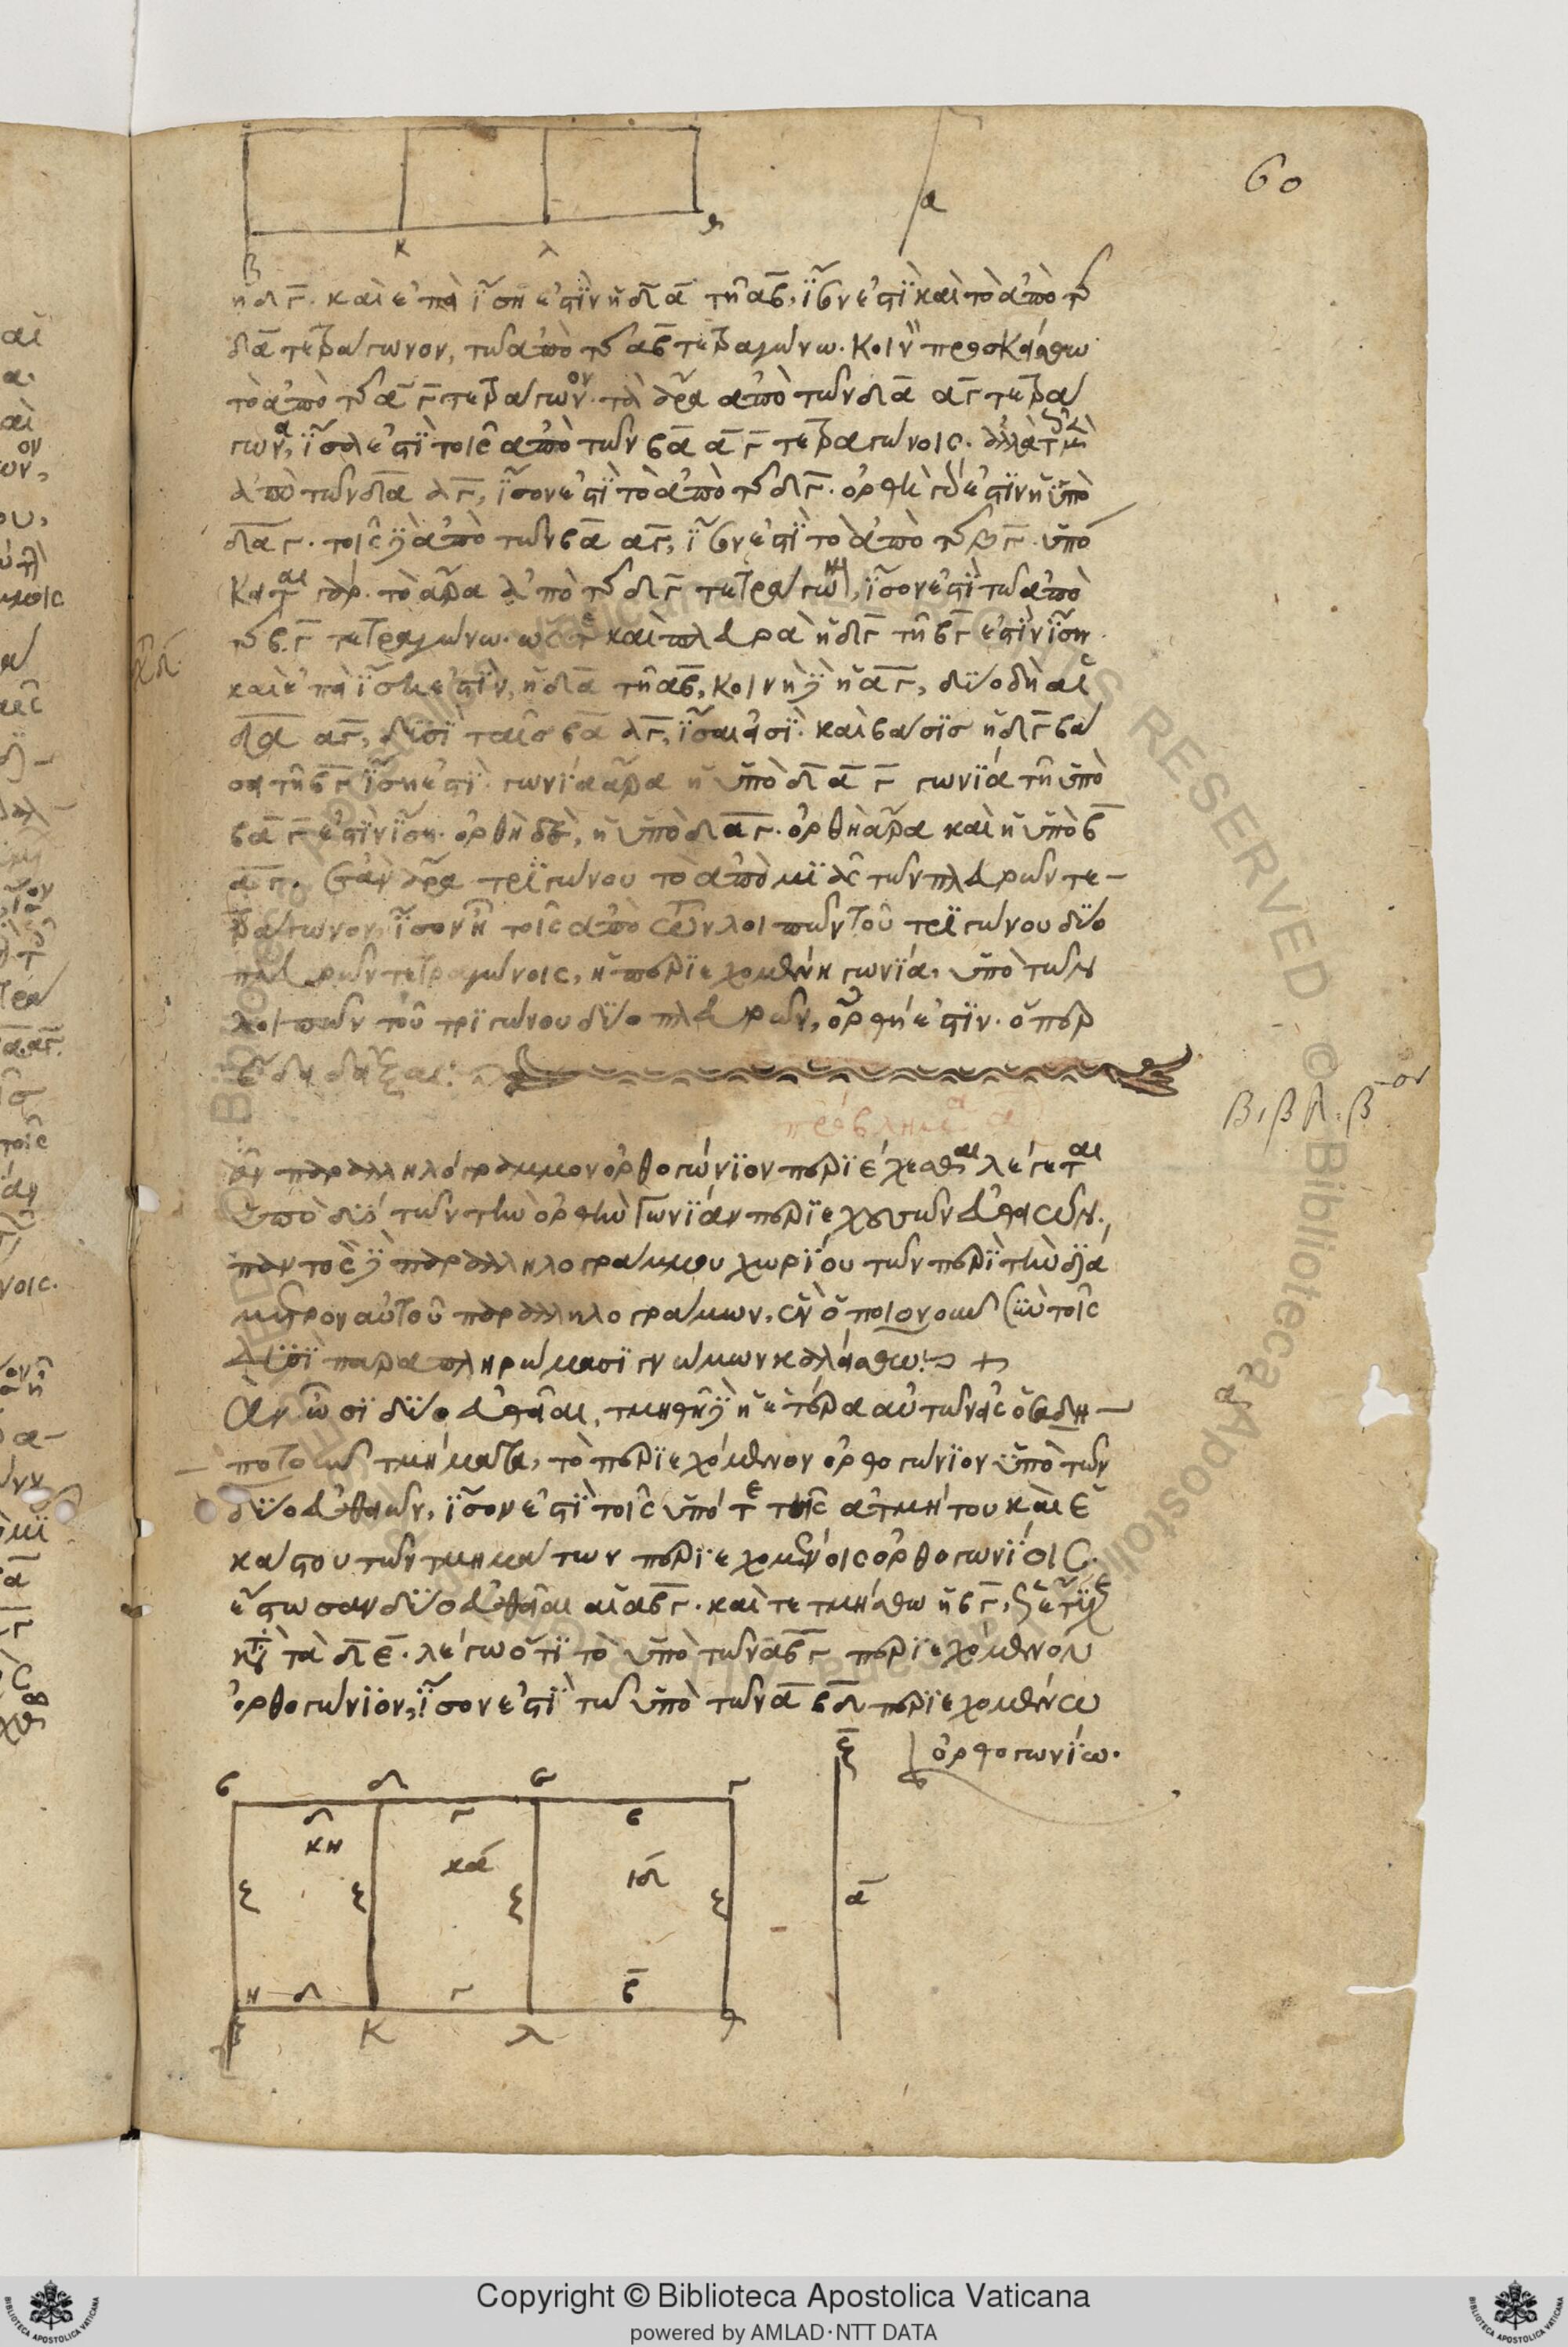 60
α
κ λ θ
β
ἡ δγ. καὶ ἐπεὶ ἴση ἐστὶν ἡ δα τῆ αβ, ἴσον ἐστὶ καὶ τὸ ἀπὸ τοῦ
δα τετράγωνον, τῶ ἀπὸ τοῦ αβ τετραγώνω. κοινὸν προσκείσθω
τὸ ἀπὸ τοῦ αγ τετράγωνον. τὰ ἄρα ἀπὸ τῶν δα αγ τετρά
γωνα, ἴσα ἐστὶ τοῖς ἀπὸ τῶν βα αγ τετραγώνοις. ἀλλὰ τοῖς μὲν
ἀπὸ τῶν δα αγ, ἴσον ἐστὶ τὸ ἀπὸ τοῦ δγ. ὀρθὴ γάρ ἐστιν ἡ ὑπὸ
δαγ. τοῖς δὲ ἀπὸ τῶν βα αγ, ἴσον ἐστὶ τὸ ἀπὸ τοῦ βγ. ὑπό
κειται γάρ. τὸ ἄρα ἀπὸ τοῦ δγ τετράγωνον, ἴσον ἐστὶ τῶ ἀπὸ
τοῦ βγ τετραγώνω. ὥστε καὶ πλευρὰ ἡ δγ τῆ βγ ἐστὶν ἴση.
καὶ ἐπεὶ ἴση ἐστὶν, ἡ δα τῆ αβ, κοινὴ δὲ ἡ αγ, δύο δὴ αἱ
δα αγ, δυσὶ ταῖς βα αγ, ἴσαι εἰσὶ. καὶ βάσις ἡ δγ βά
σει τῆ βγ ἴση ἐστί. γωνία ἄρα ἡ ὑπὸ δαγ γωνία τῆ ὑπὸ
βαγ ἐστὶν ἴση. ὀρθὴ δὲ, ἡ ὑπὸ δαγ. ὀρθὴ ἄρα καὶ ἡ ὑπὸ β
αγ. ἐὰν ἄρα τριγώνου τὸ ἀπὸ μιᾶς τῶν πλευρῶν τε
τράγωνον, ἴσον ἦ τοῖς ἀπὸ τῶν λοιπῶν τοῦ τριγώνου δύο
πλευρῶν τετραγώνοις, ἡ περιεχομένη γωνία, ὑπὸ τῶν
λοιπῶν τοῦ τριγώνου δύο πλευρῶν, ὀρθή ἐστιν. ὅπερ
ἔδει δεῖξαι:
βιβλ. β ον
πρόβλημα α
ᾶν παραλληλόγραμμον ὀρθογώνιον περιέχεσθαι λέγεται
ὑπὸ δύο τῶν τὴν ὀρθὴν γωνίαν περιεχουσῶν εὐθειῶν.
παντὸς δὲ παραλληλογράμμου χωρίου τῶν περὶ τὴν διά
μετρον αὐτοῦ παραλληλογράμμων, ἓν ὁποιονοῦν σὺν τοῖς
δυσὶ παραπληρώμασι γνώμων καλείσθω:
Ἐὰν ὦσι δύο εὐθεῖαι, τμηθῆ δὲ ἡ ἑτέρα αὐτῶν εἰς ὁσαδη
ποτοῦν τμήματα, τὸ περιεχόμενον ὀρθογώνιον ὑπὸ τῶν
δύο εὐθειῶν, ἴσον ἐστὶ τοῖς ὑπό τε τῆς ἀτμήτου καὶ ἑ
κάστου τῶν τμημάτων περιεχομένοις ὀρθογωνίοις.
ἔστωσαν δύο εὐθεῖαι αἱ αβγ. καὶ τετμήσθω ἡ βγ, ὡς ἔτυχε
κατὰ τὰ δε. λέγω ὅτι τὸ ὑπὸ τῶν αβγ περιεχόμενον
ὀρθογώνιον, ἴσον ἐστὶ τῶ ὑπὸ τῶν α βδ περιεχομένω
ὀρθογωνίω.
β δ ε γ ξ
δ γ β
κη κα ιδ
ξ ξ ξ ξ α
η δ γ β
κ λ θ